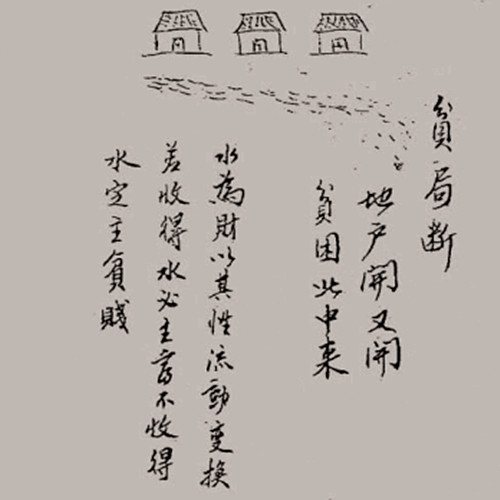 貧局断
地户開又開
貧困此中来
水為財以其性流動变換
若收得水必主富不收得
水定主貧賤